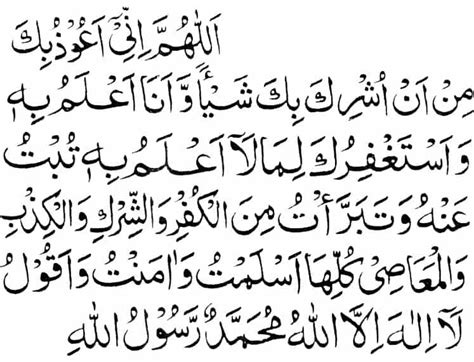 اَللّٰهُمَّ اِنِّیْٓ اَعُوْذُ بِكَ
مِنْ اَنْ اُشْرِكَ بِكَ شَیْأً وَّاَنَا اَعْلَمُ بِهٖ
وَاَسْتَغْفِرُكَ لِمَا لَآ اَعْلَمُ بِهٖ تُبْتُ
عَنْهُ وَتَبَرَّأْتُ مِنَ الْكُفْرِ وَالشِّرْكِ وَالْكِذْبِ
وَالْمَعَاصِیْ كُلِّهَا اَسْلَمْتُ وَاٰمَنْتُ وَاَقُوْلُ
لَآ اِلٰهَ اِلَّا اللّٰهُ مُحَمَّدٌ رَّسُوْلُ اللّٰهِ